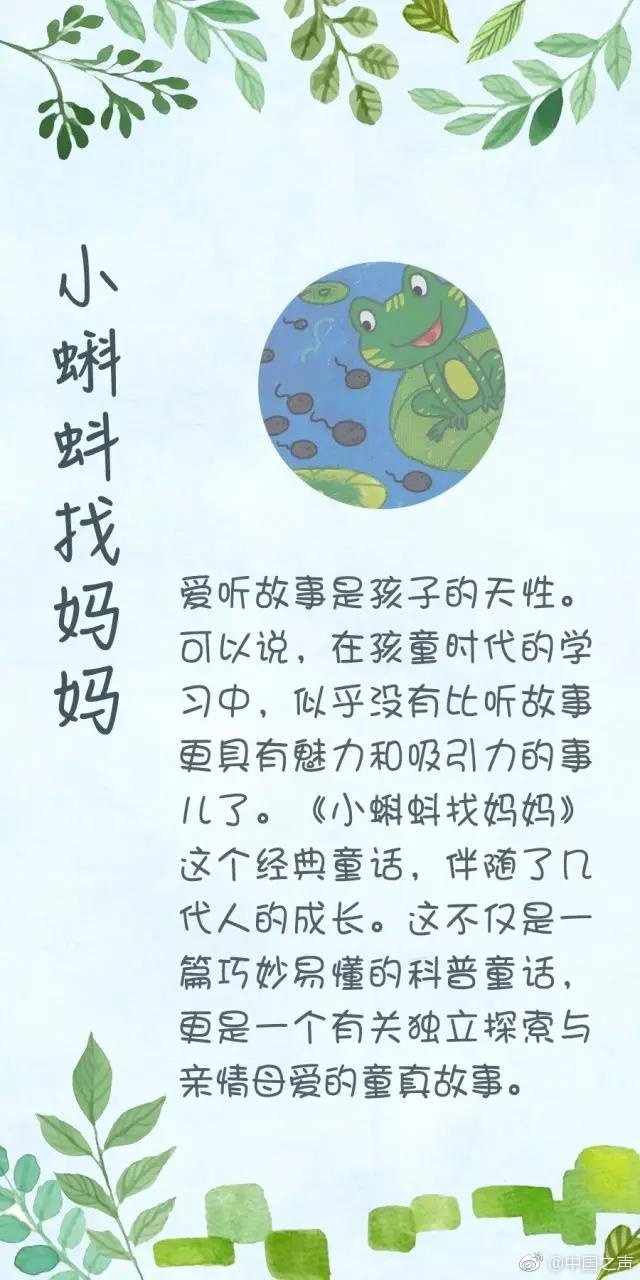 小蝌蚪找妈妈
爱听故事是孩子的天性。
可以说，在孩童时代的学
习中，似乎没有比听故事
更具有魅力和吸引力的事
儿了。《小蝌蚪找妈妈》
这个经典童话，伴随了几
代人的成长。这不仅是一
篇巧妙易懂的科普童话，
更是一个有关独立探索与
亲情母爱的童真故事。
@中国之声